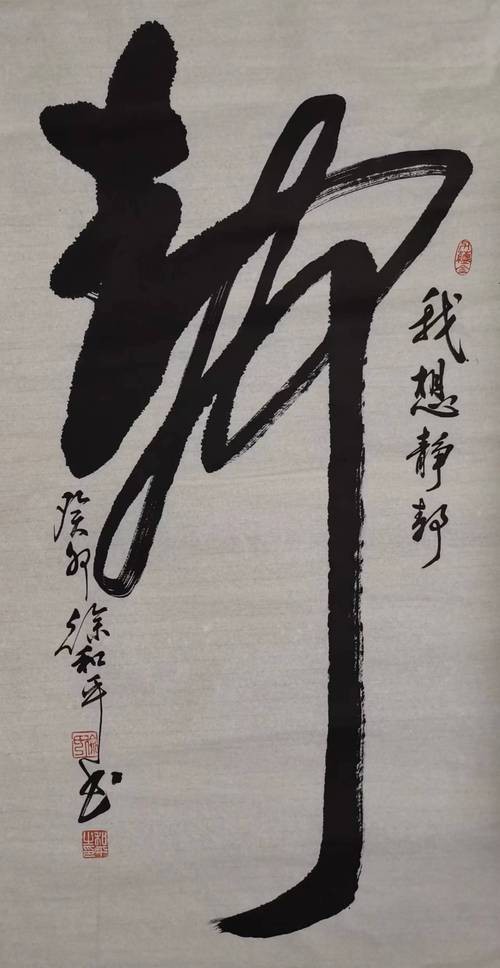 静
我想靜静
癸卯徐和平书